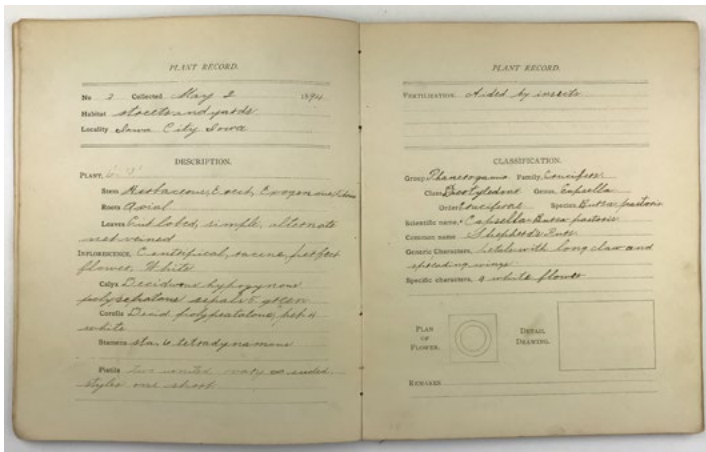 PLANT RECORD.
No 2 Collected May 2 1894
Habitat streets and yards
Locality Iowa City Iowa
DESCRIPTION.
PLANT,
Stem Herbaceous, Erect, Exogenous,
Roots Axial
Leaves Cut lobed, simple, alternate
net veined
INFLORESCENCE, Centripical, raceme, perfect
flower, White
Calyx Deciduous hypogynous
polysepalous sepals green
Corolla Decid polypetalous, pet 4
white
Stamens sta 6 tetradynamous
Pistils two united ovary
styles one short
PLANT RECORD.
FERTILIZATION. Aided by insects
CLASSIFICATION.
Group Phanerogamia Family, Cruciferae
Class Genus, Capsella
Order Cruciferae Species Bursa pastoris
Scientific name, Capsella Bursa pastoris
Common name Shepherd's Purse
Generic Characters, petals with long claw and
spreading wings
Specific characters, a white flower
PLAN
OF
FLOWER.
DETAIL
DRAWING.
REMARKS